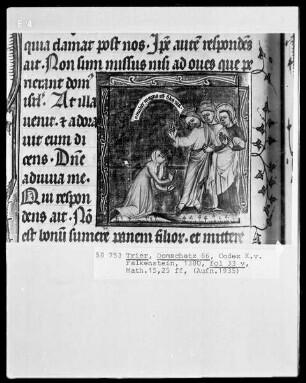 E 4
quia clamat post nos. Ipe autē respondēs
ait. Non sum missus nisi ad oues que pe
rierant dom⁹
isrl. At illa
uenit et adora
uit eum di
cens. Dn̄e
adiuua me.
Qui respon
dens ait. Nō
est bonū sumere panem filior. et mittere
50 753 Trier, Domschatz 66, Codex K.v.
Falkenstein, 1380, fol 33 v,
Math.15,25 ff, (Aufn.1935)